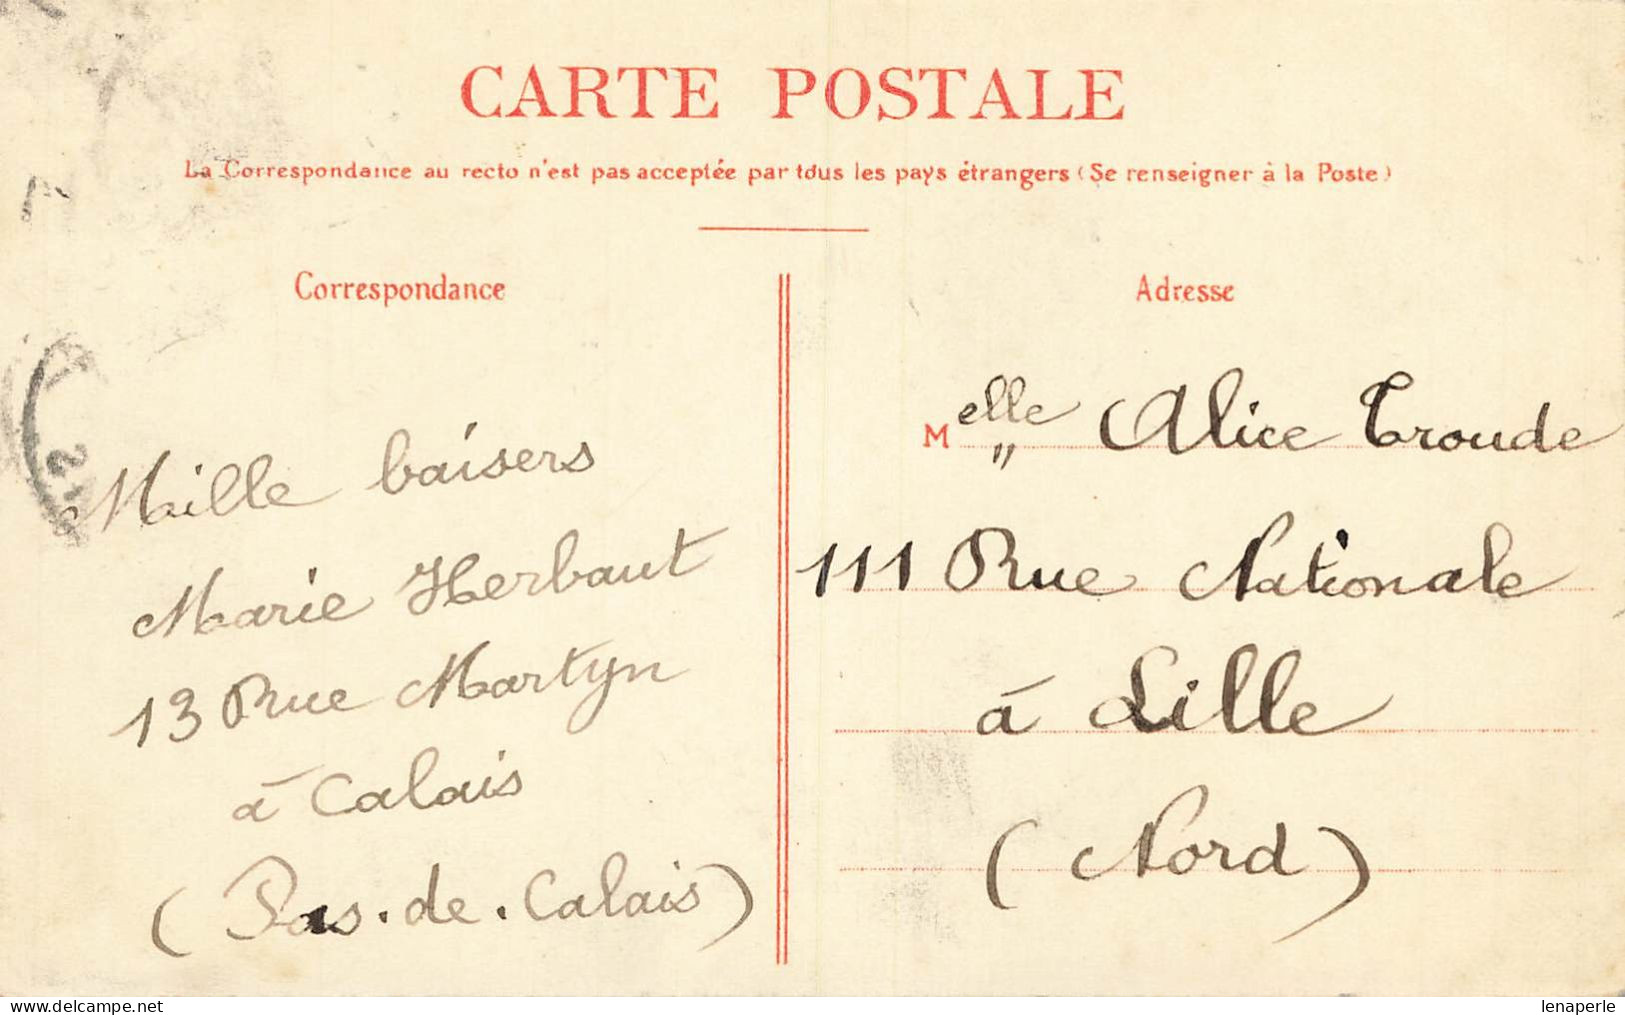 CARTE POSTALE
La Correspondance au recto n'est pas acceptée par tous les pays étrangers (Se renseigner à la Poste)
Correspondance
Mille baisers
Marie Herbaut
13 Rue Martyn
à Calais
(Pas-de-Calais)
Adresse
Melle Alice Troude
111 Rue Nationale
à Lille
(Nord)
delcampe.net
lenaperle